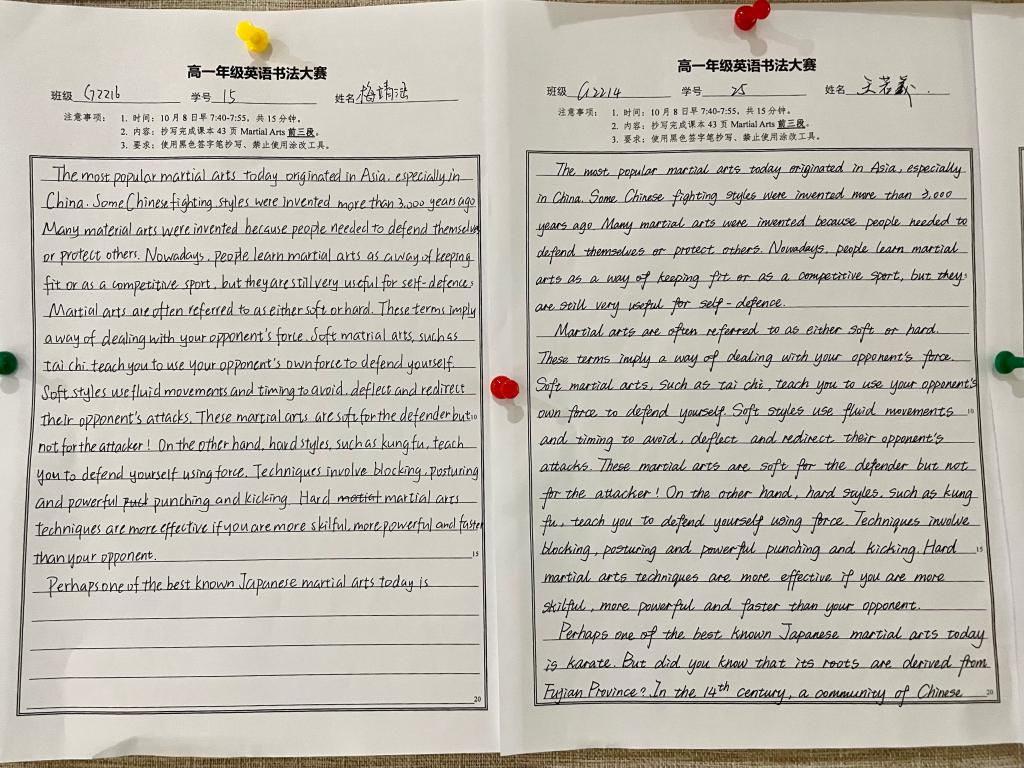 高一年级英语书法大赛
班级 G2216 学号 15 姓名 梅靖泓
注意事项: 1. 时间：10 月 8 日早 7:40-7:55，共 15 分钟。
2. 内容：抄写完成课本 43 页 Martial Arts 前三段。
3. 要求：使用黑色签字笔抄写、禁止使用涂改工具。
The most popular martial arts today originated in Asia, especially in
China. Some Chinese fighting styles were invented more than 3,000 years ago
Many material arts were invented because people needed to defend themselves
or protect others. Nowadays, people learn martial arts as a way of keeping
fit or as a competitive sport, but they are still very useful for self-defence.
Martial arts are often referred to as either soft or hard. These terms imply
a way of dealing with your opponent's force. Soft matrial arts, such as
tai chi, teach you to use your opponent's own force to defend yourself.
Soft styles use fluid movements and timing to avoid, deflect and redirect
their opponent's attacks. These martial arts are soft for the defender but
10
not for the attacker! On the other hand, hard styles, such as kung fu, teach
you to defend yourself using force. Techniques involve blocking, posturing
and powerful punching and kicking. Hard martial arts
techniques are more effective if you are more skilful, more powerful and faster
than your opponent.
15
Perhaps one of the best known Japanese martial arts today is
20
高一年级英语书法大赛
班级 G2214 学号 25 姓名 王若羲
注意事项: 1. 时间：10 月 8 日早 7:40-7:55，共 15 分钟。
2. 内容：抄写完成课本 43 页 Martial Arts 前三段。
3. 要求：使用黑色签字笔抄写、禁止使用涂改工具。
The most popular martial arts today originated in Asia, especially
in China. Some Chinese fighting styles were invented more than 3,000
years ago. Many martial arts were invented because people needed to
defend themselves or protect others. Nowadays, people learn martial
arts as a way of keeping fit or as a competitive sport, but they
are still very useful for self-defence.
Martial arts are often referred to as either soft or hard.
These terms imply a way of dealing with your opponent's force.
Soft martial arts, such as tai chi, teach you to use your opponent's
own force to defend yourself. Soft styles use fluid movements
10
and timing to avoid, deflect and redirect their opponent's
attacks. These martial arts are soft for the defender but not
for the attacker! On the other hand, hard styles, such as kung
fu, teach you to defend yourself using force. Techniques involve
blocking, posturing and powerful punching and kicking. Hard
15
martial arts techniques are more effective if you are more
skilful, more powerful and faster than your opponent.
Perhaps one of the best known Japanese martial arts today
is karate. But did you know that its roots are derived from
Fujian Province? In the 14th century, a community of Chinese
20